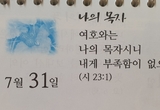 나의 목자
여호와는
나의 목자시니
내게 부족함이 없으
(시 23:1)
7월 31일